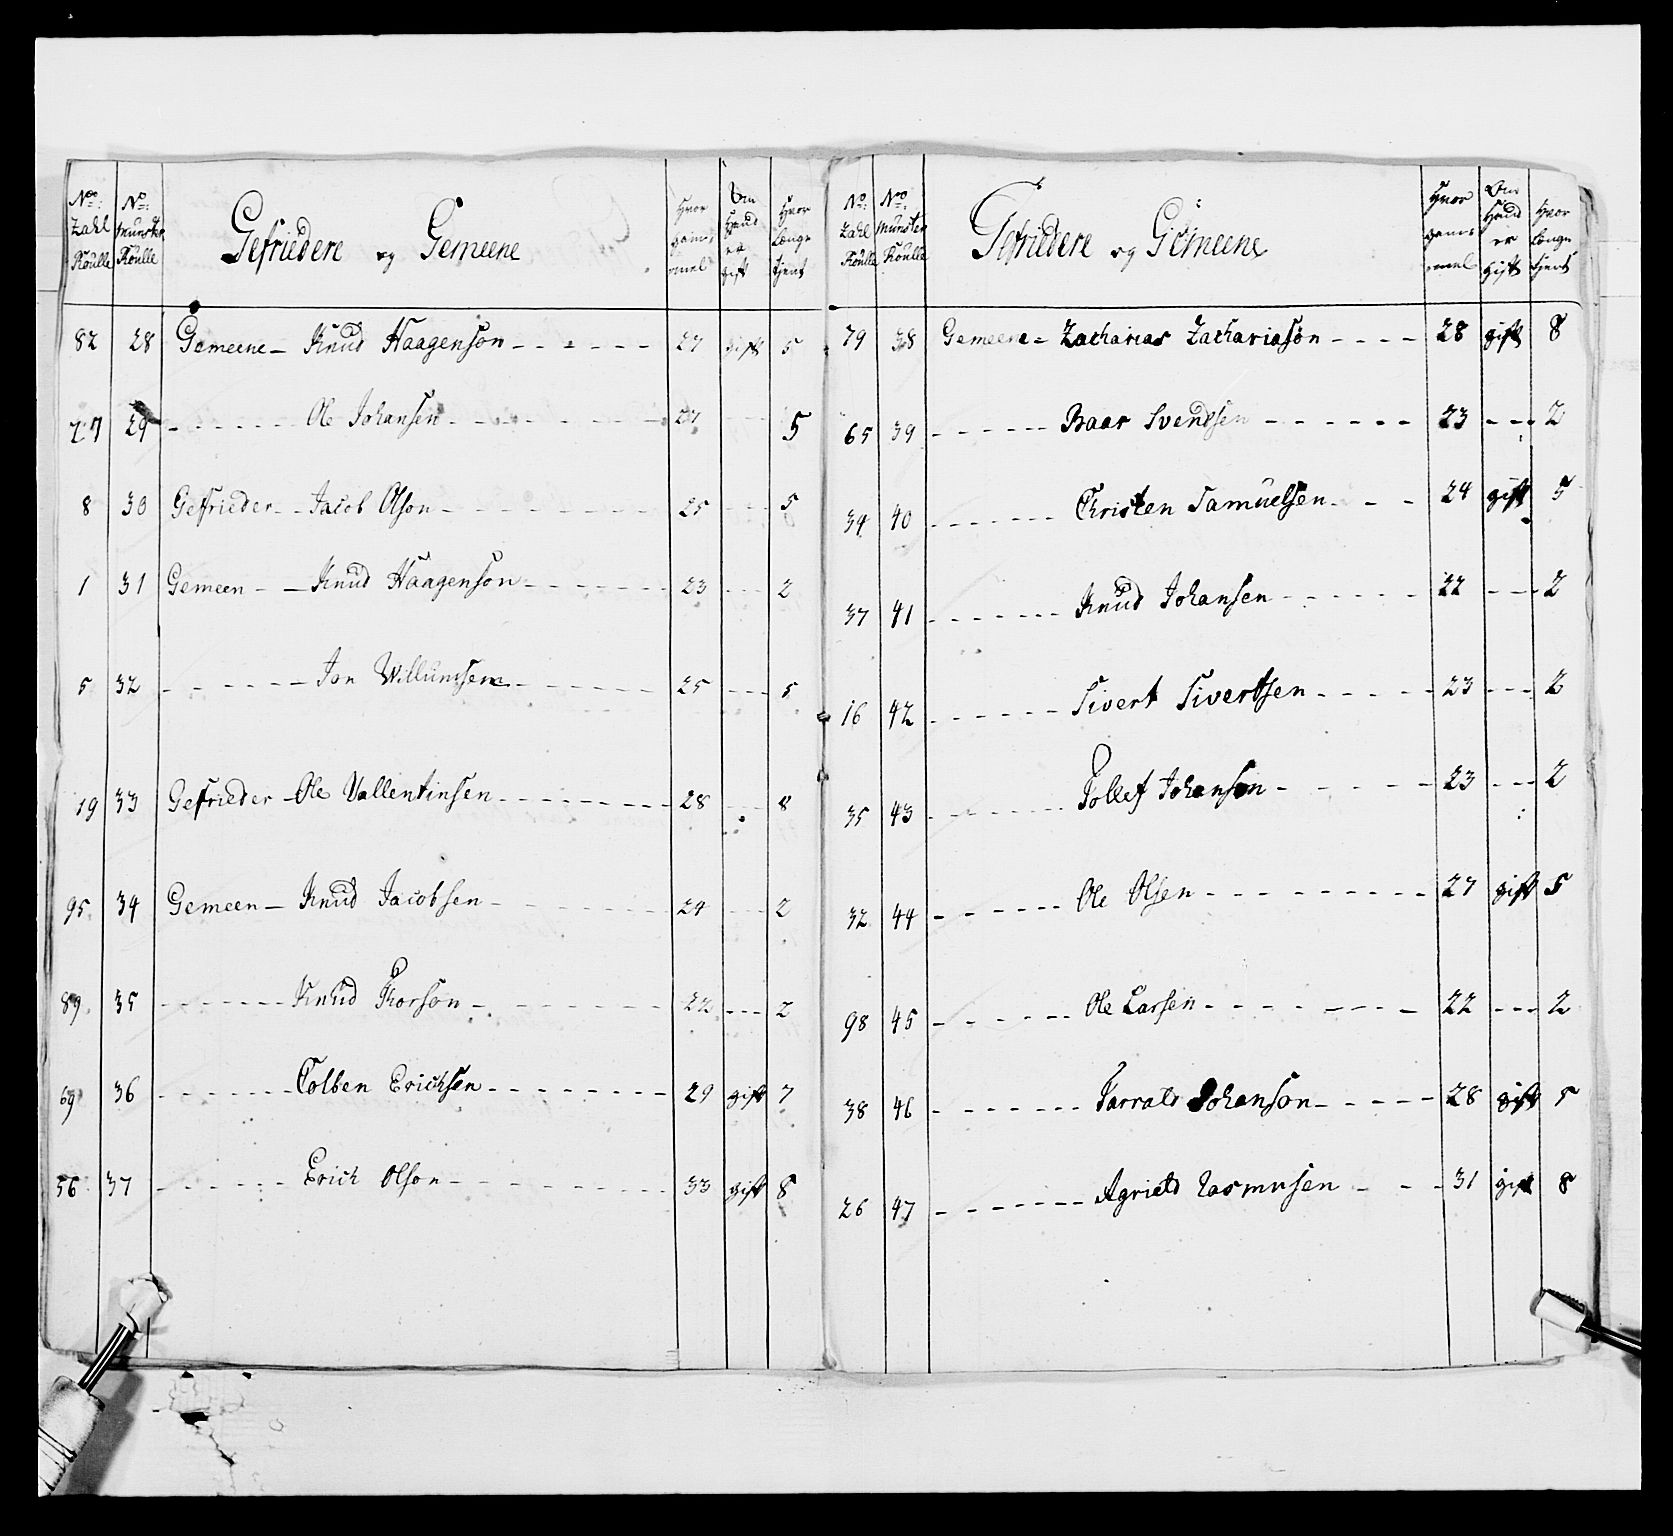 No: Zahl Roulle | No: Munster Roulle | Gefriedere og Gemeene | Hvor gam: mel | Om Hand er gift | Hvor Længe tjent
82 28 Gemeene - Knud Haagenson - - - - - - 27 gift 5
77 29 - - - - - - Ole Johansen - - - - - - - 27 5
8 30 Gefrieder - - Jacob Olson - - - - - - - - 25 - - - 5
1 31 Gemeen - - Knud Haagenson - - - - - - - 23 - - - 2
5 32 - - - - - - Jon Willumsen - - - - - - 25 - - - 5
19 33 Gefrieder - Ole Vallentinsen - - - - - - - - - 28 - - - 8
95. 34 Gemeen - Knud Jacobsen - - - - - - - - 24 - - - 2
89. 35 - - - - - - - Knud Thorson - - - - - - - - 22 - - - 2
69 36 - - - - - - Tolben Erichsen - - - - - - - - 29 gift 7
56 37 - - - - - - Erich Olson - - - - - - - - - 33 gift 8
No: Zahl Roulle | No: Munster Roulle | Gefriedere og Gemeene | Hvor gam: mel | Om Hand er gift | Hvor Længe tjent
79 38 Gemeene - Zacharias Zachariason - - - - 28 gift 8
65 39 - - - - - - Baar Svendsen - - - - - - 23 - - - 2
34 40 - - - - - - - Christen Samuelsen - - - 24 gift 5
37 41 - - - - - - - Knud Johansen - - - - - - 22 - - - 2
16 42 - - - - - - - Sivert Sivertsen - - - - - 23 - - - 2
35 43 - - - - - - - Tollef Johanson - - - - - - 23 - - - 2
32 44 - - - - - - Ole Olsen - - - - - - - - - 27 gift 5
98 45 - - - - - - Ole Larsen - - - - - - - - - 22 - - - 2
38 46 - - - - - - - Tarrald Johanson - - - - - 28 gift 5
26 47 - - - - - - - Rasmusen - - - 31 gift 8